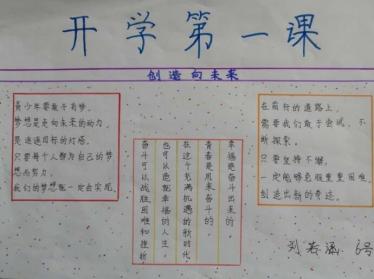 开学第一课
创造向未来
青少年要敢于有梦。
梦想是走向未来的动力,
是追逐目标的灯塔。
只要每个人都为自己的梦
想而努力。
我们的梦想就一定会实现。
幸福是奋斗出来的。
青春是用来奋斗的
在这个充满机遇的新时代
也可以造就幸福的人生。
奋斗可以战胜困难和挫折
在前行的道路上,
需要我们敢于尝试,不
断探索。
只要坚持不懈,
一定能够克服重重困难,
创造出新的奇迹。
刘 6号